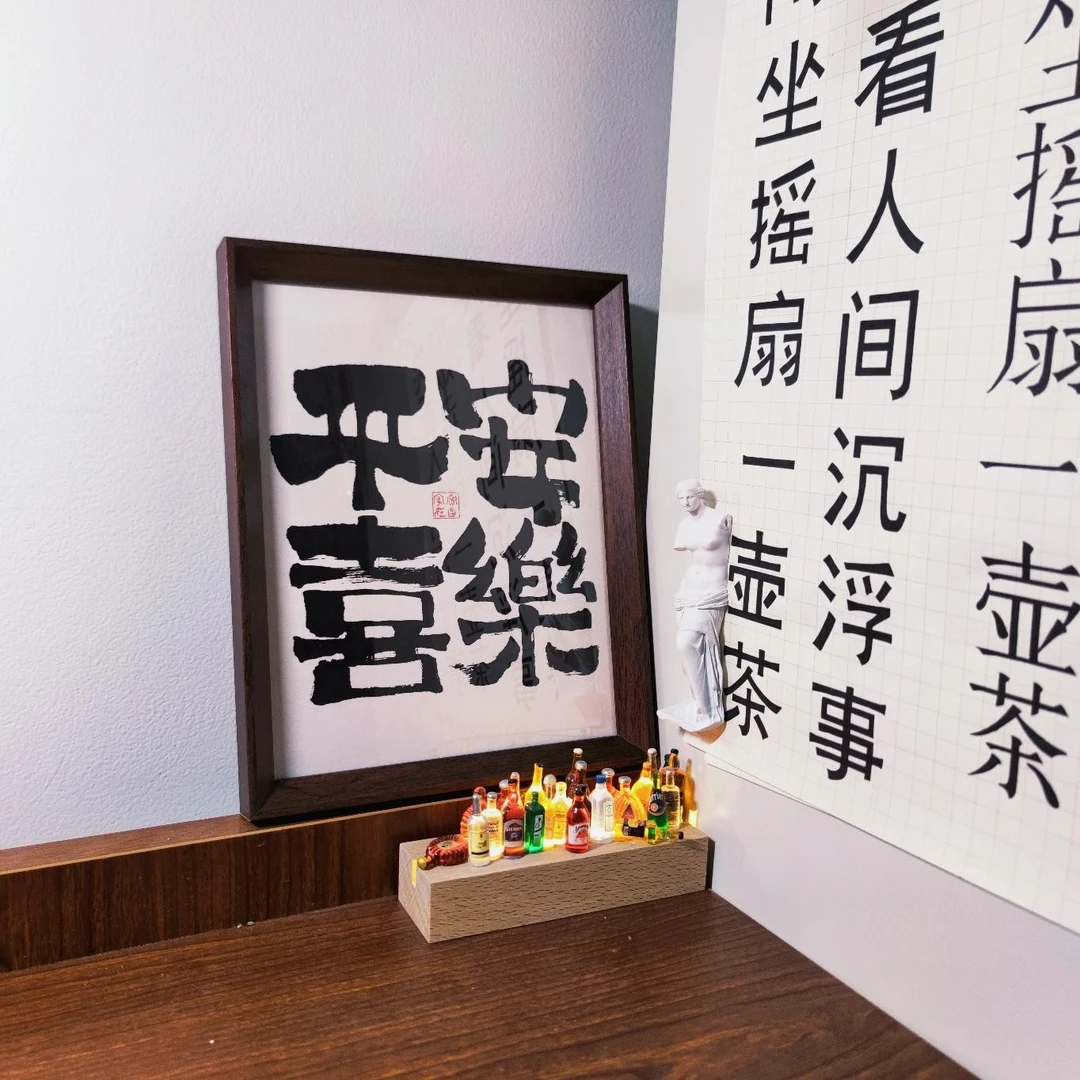 平安
喜樂
摇扇一壶茶
看人间沉浮事
坐摇扇一壶茶